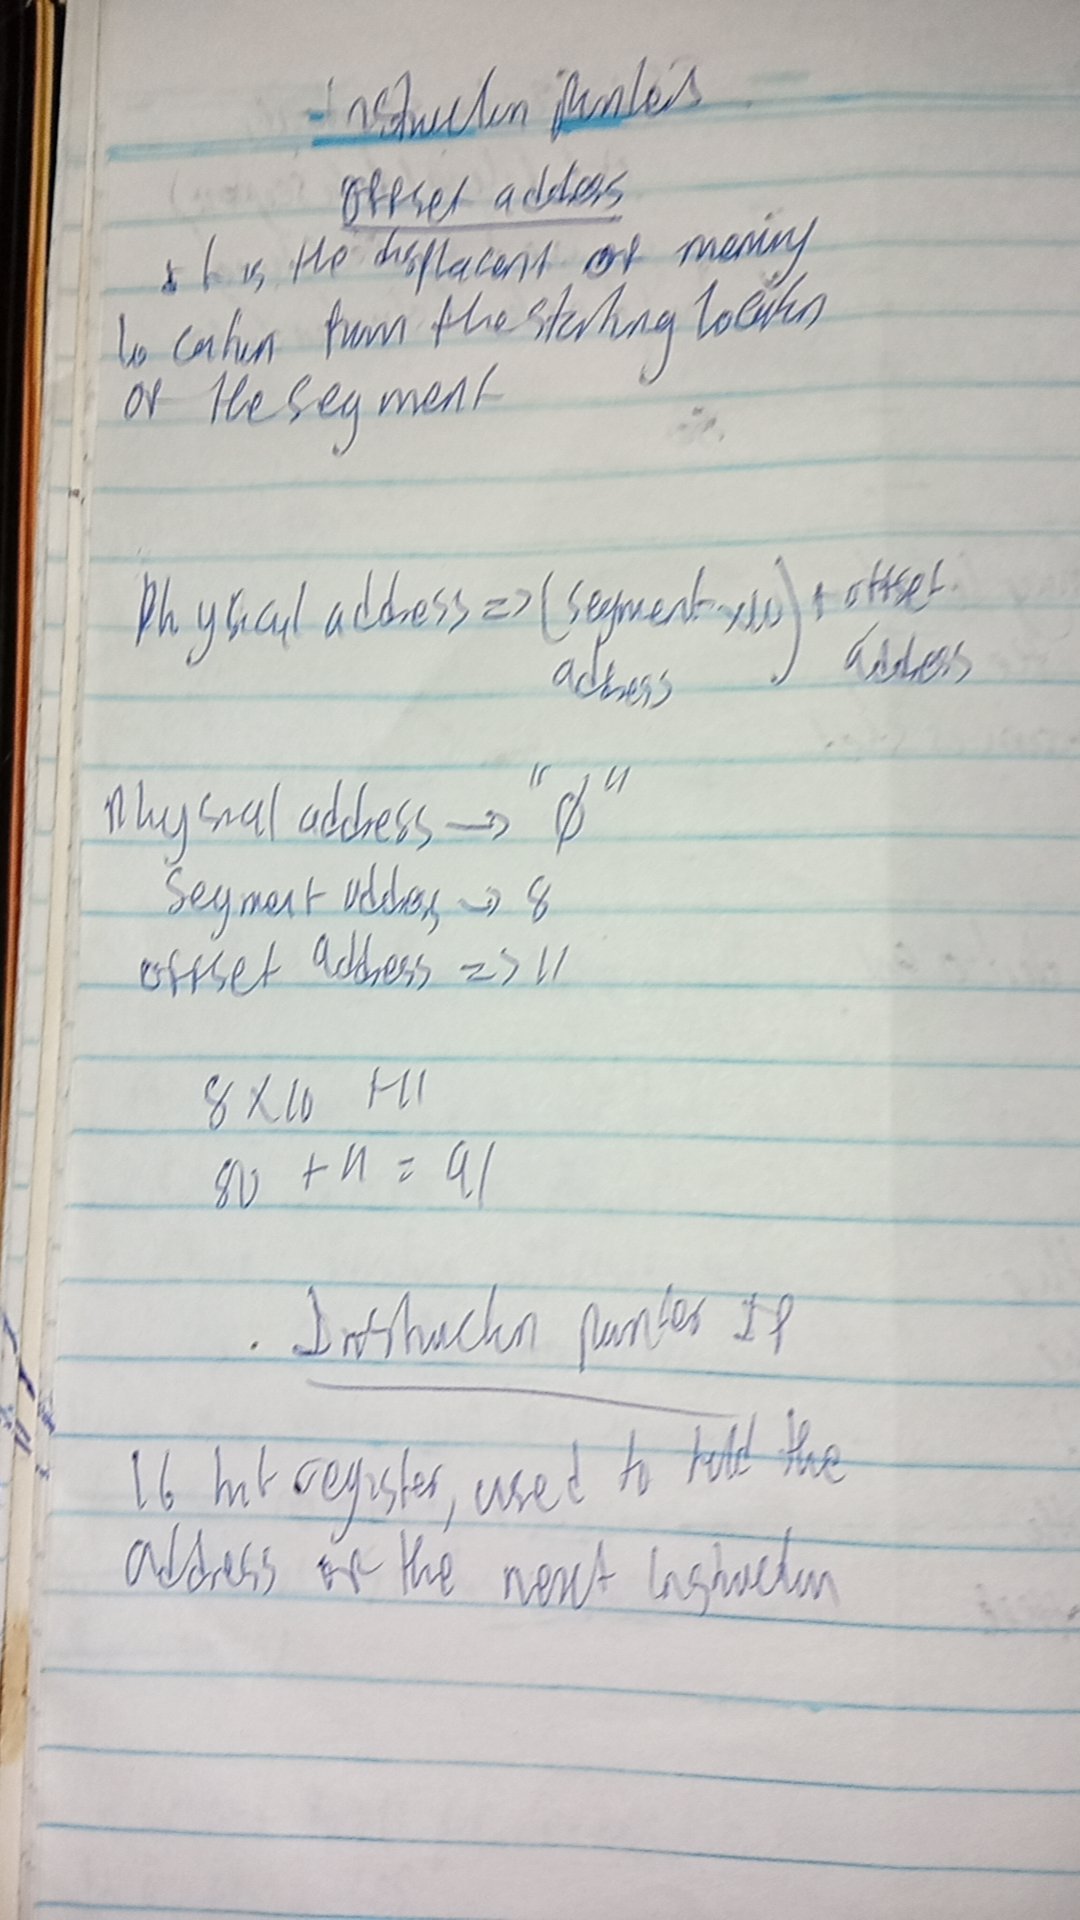 Instruction pointers
offset address
It is the displacent of memory
location from the starting location
of the segment
Physical address => (segment x10) + offset
address address
Physical address → "Ø"
Segment address → 8
offset address => 11
8 x 10 +11
80 + 11 = 91
. Instruction pointer IP
16 bit register, used to hold the
address of the next instruction